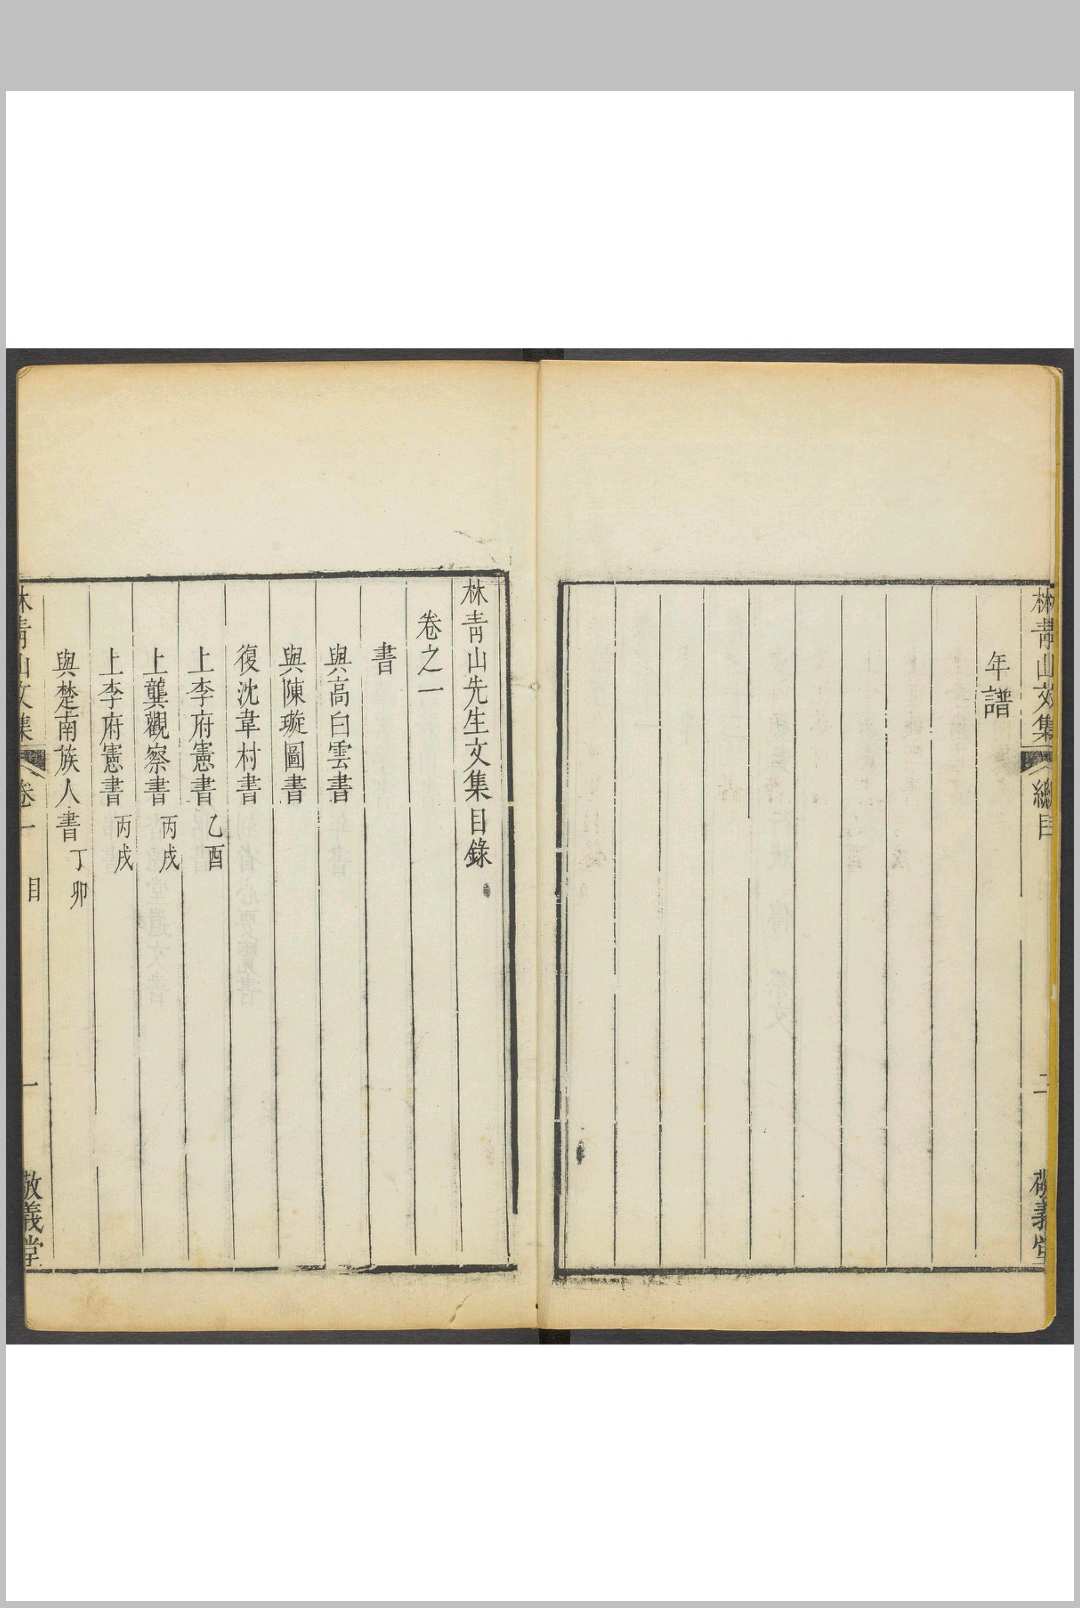 林青山文集
總目
二
敬義堂
年譜
林青山先生文集目錄
卷之一
書
與高白雲書
與陳璇圖書
復沈韋村書
上李府憲書乙酉
上龔觀察書丙戌
上李府憲書丙戌
與楚南族人書丁卯
林青山文集
卷一
目
一
敬義堂